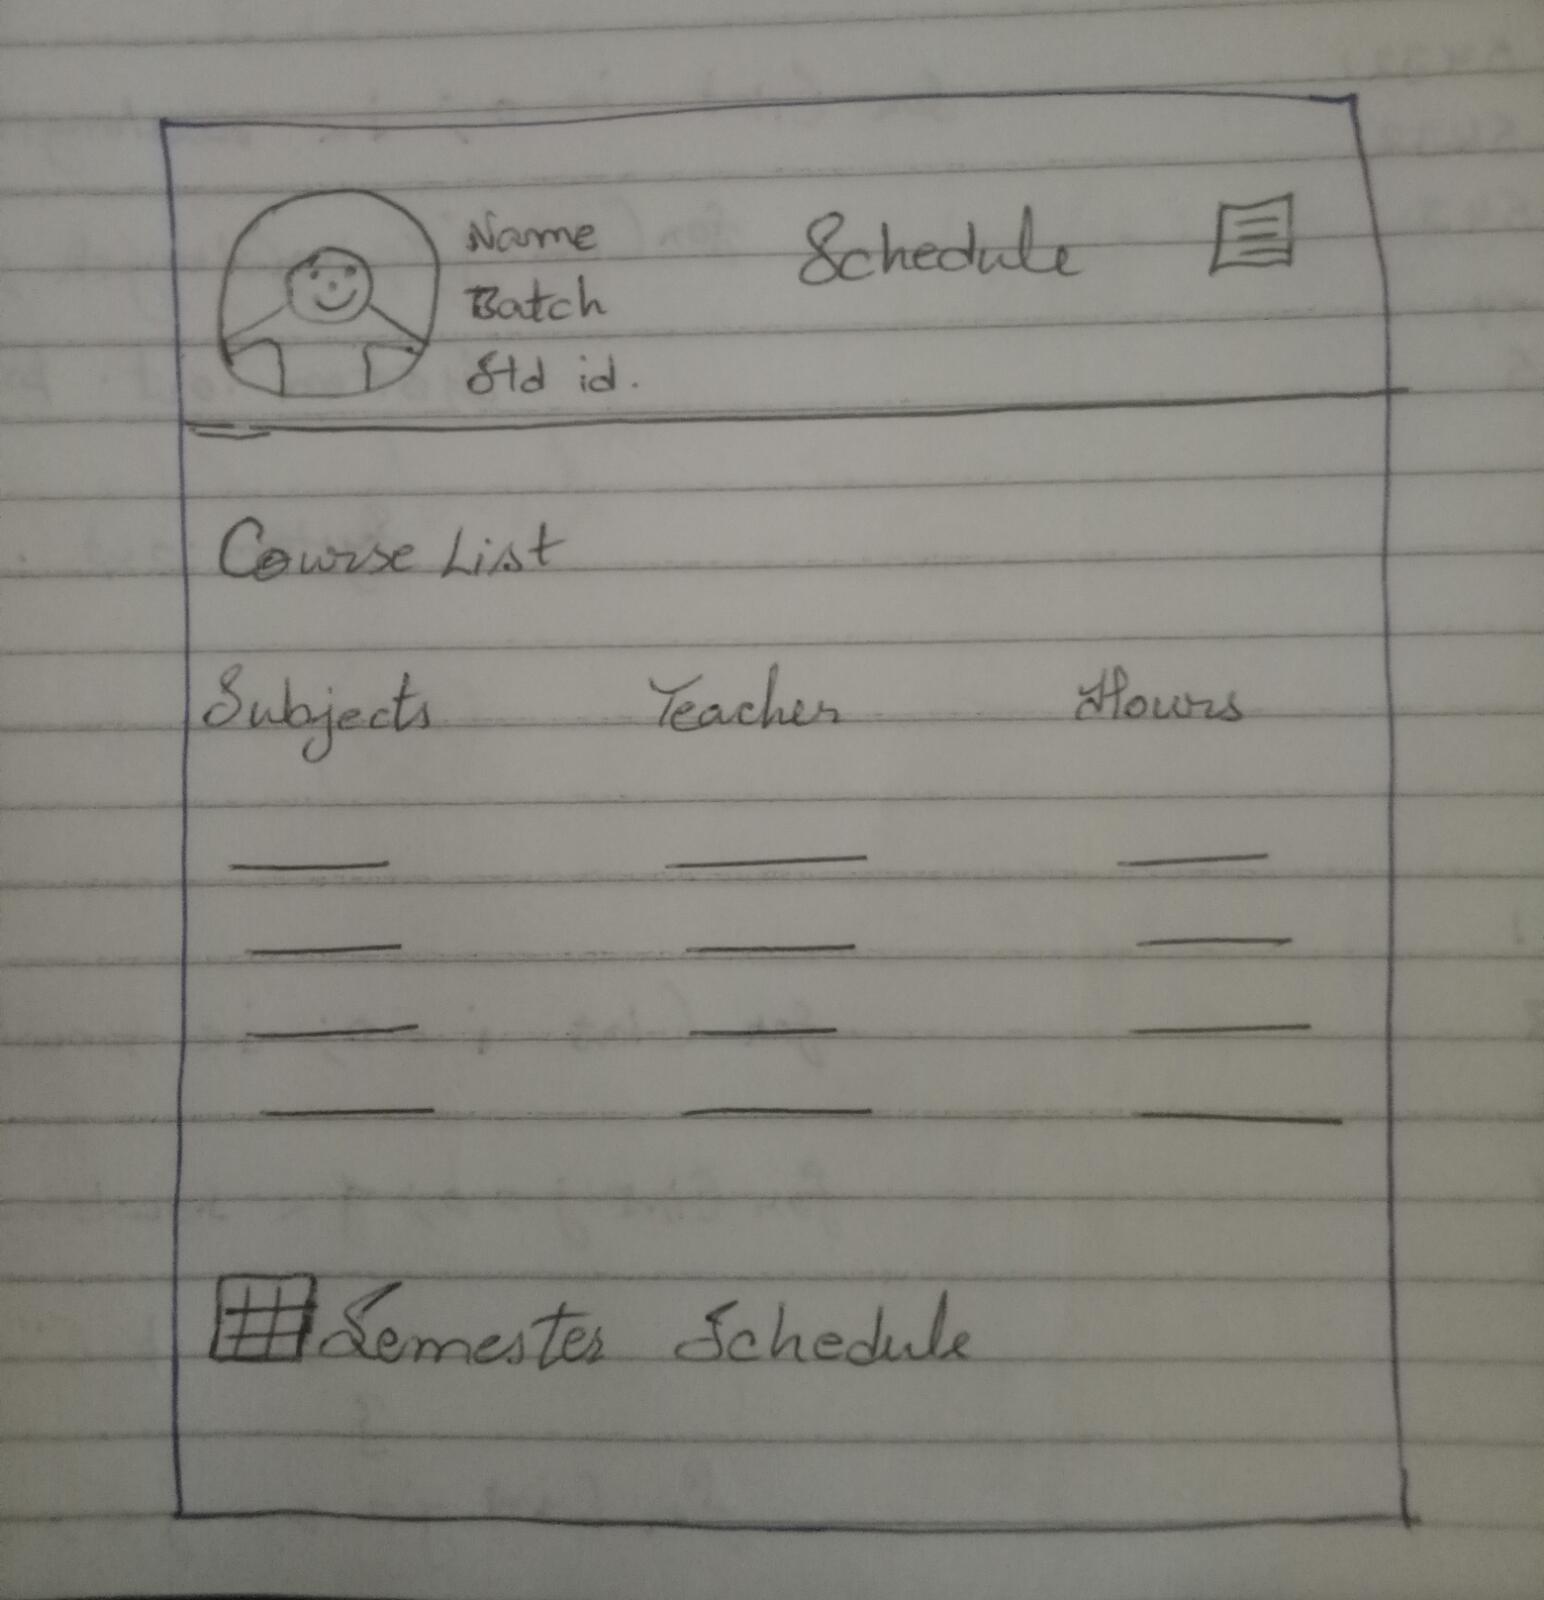 Name
Batch
Std id.
Schedule
Course List
Subjects Teacher Hours
Semester Schedule